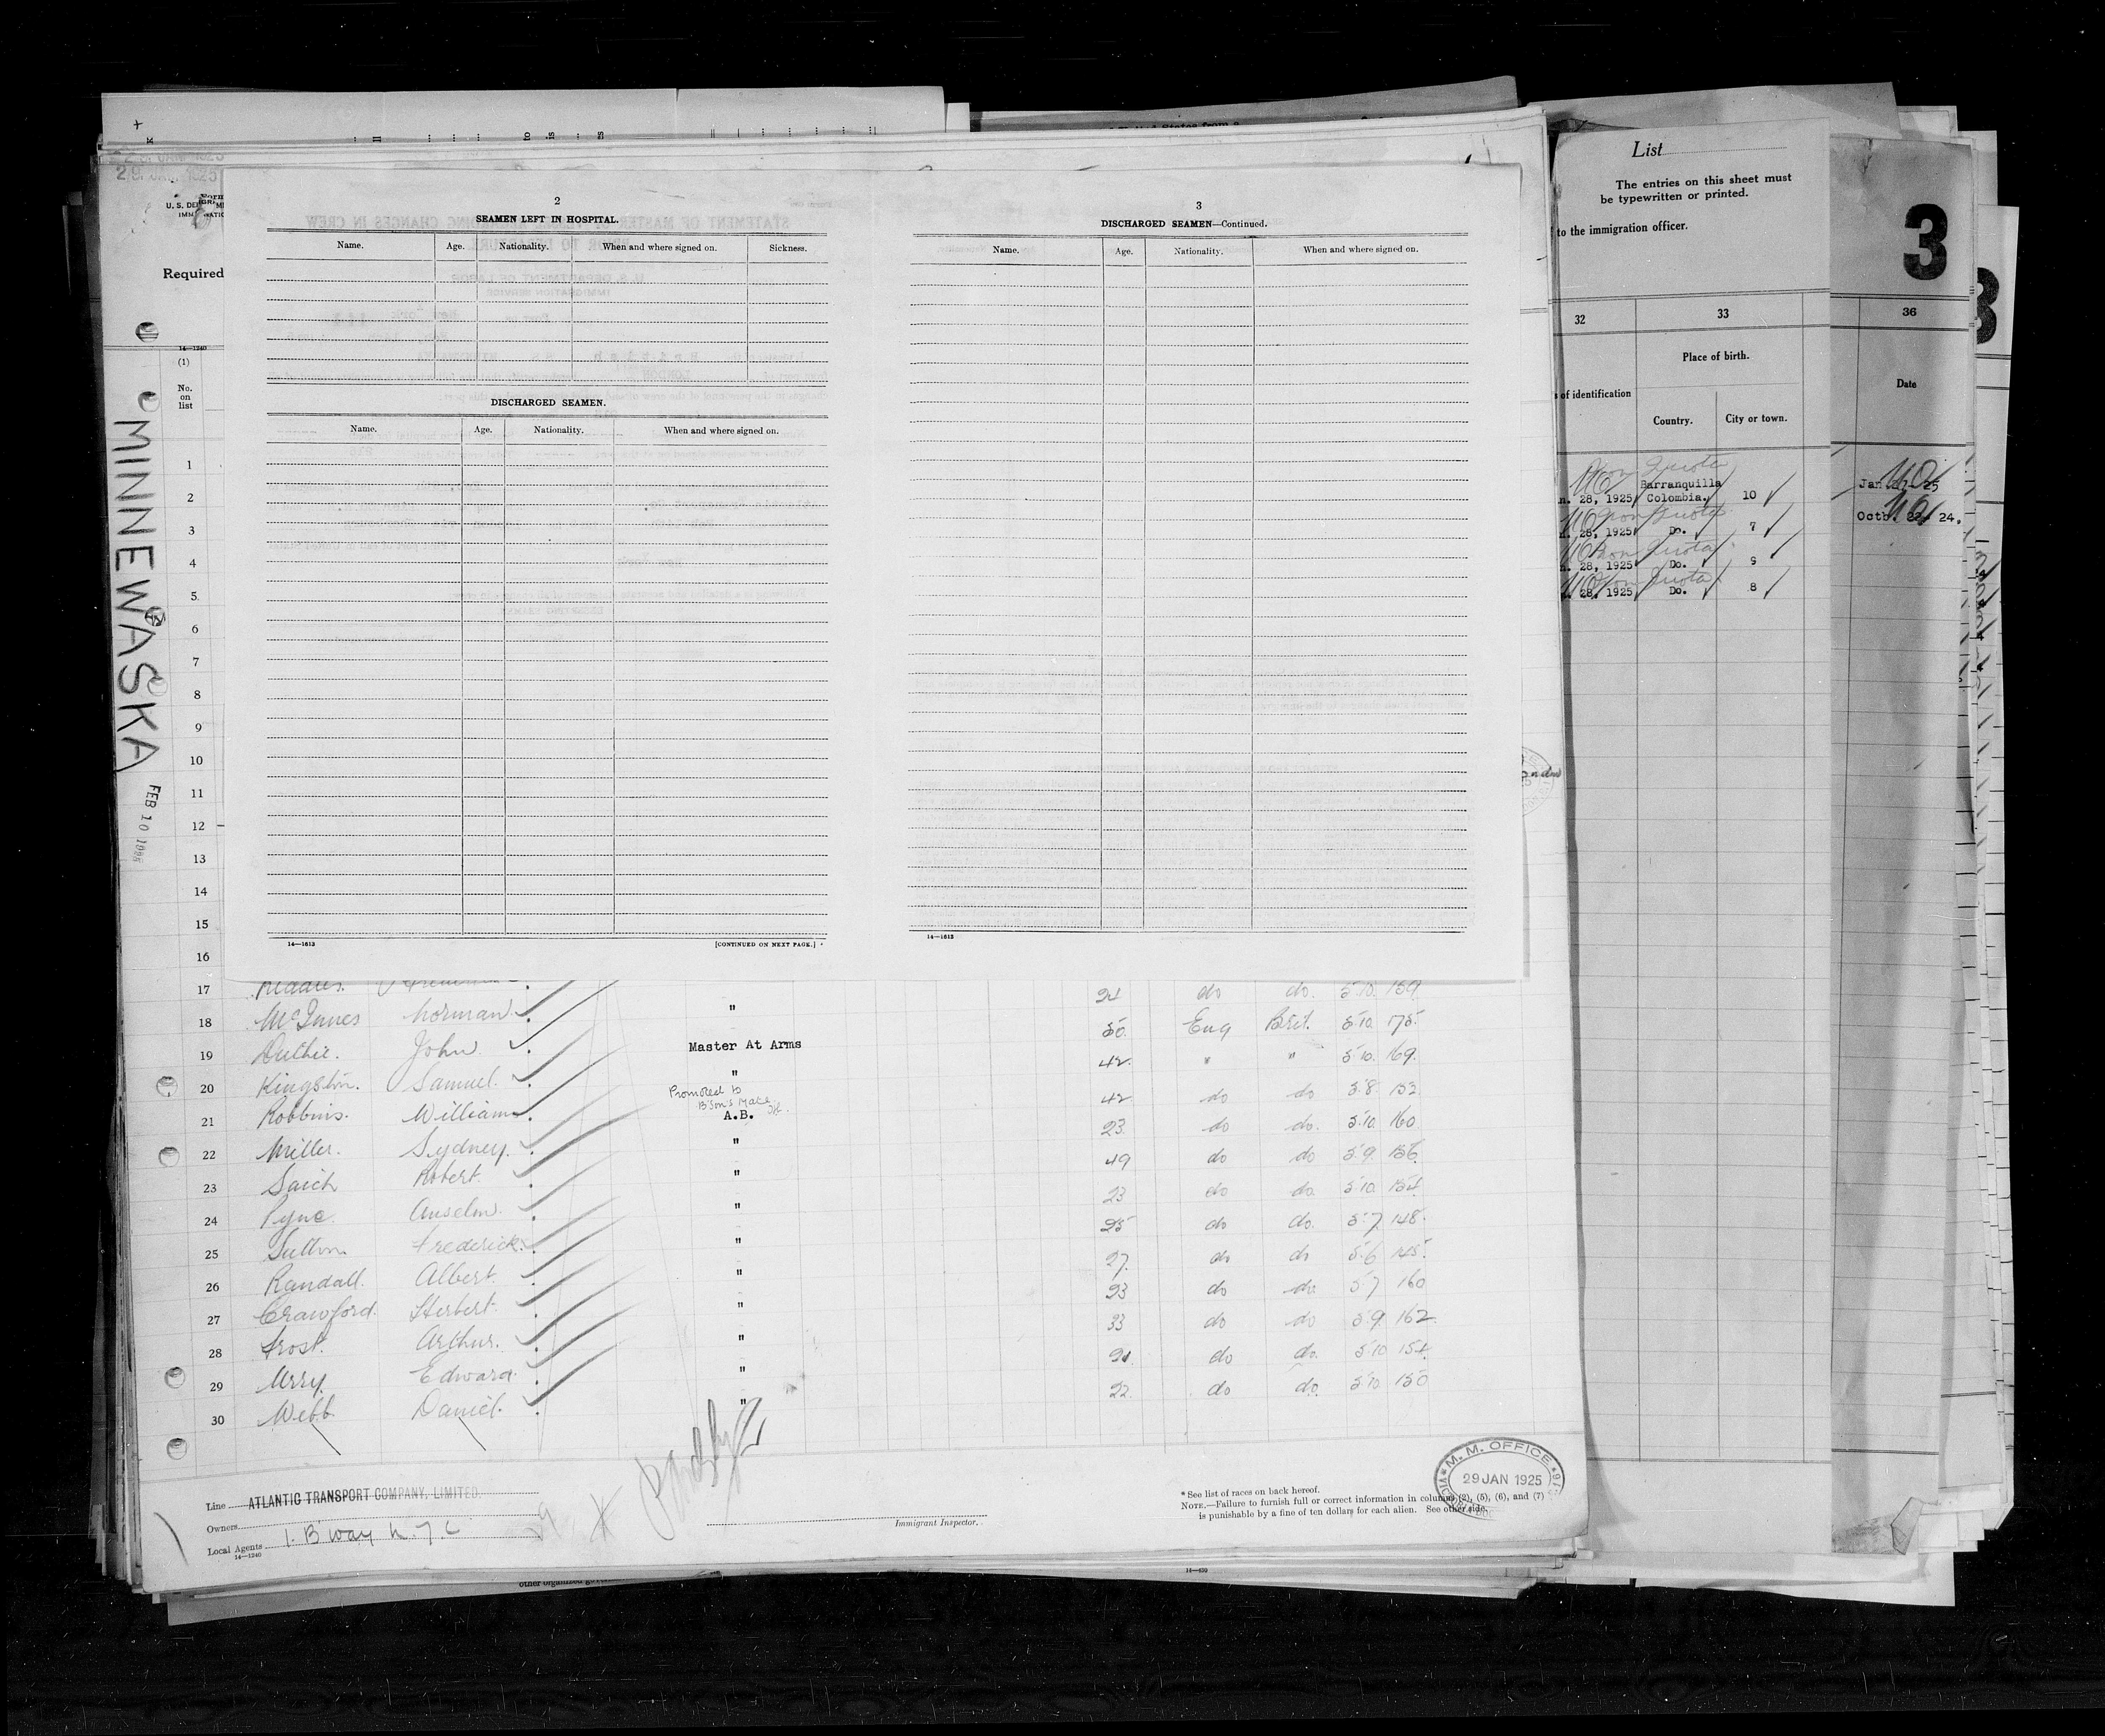 29 JAN 1925
U. S. DE
Required
14—1240
(1)
No.
on
list
MINNEWASKA
FEB 10 1925
2
SEAMEN LEFT IN HOSPITAL.
Name. Age. Nationality. When and where signed on. Sickness.
DISCHARGED SEAMEN.
Name. Age. Nationality. When and where signed on.
14—1613 [CONTINUED ON NEXT PAGE.]
3
DISCHARGED SEAMEN—Continued.
Name. Age. Nationality. When and where signed on.
14—1613
1
2
3
4
5
6
7
8
9
10
11
12
13
14
15
16
17 do do. 5'10. 159.
18 McInnes Norman. " 50. Eng Brit. 5'10. 175.
19 Duthie. John. Master At Arms 42. " " 5'10. 169.
20 Kingston. Samuel. " 42 do do 5'8. 153.
Promoted to
B'son's Mate
21 Robbins. William. A.B. 23. do do. 5'10. 160
22 Miller. Sydney. " 49 do do 5'9. 156.
23 Saich Robert. " 23 do do. 5'10. 154.
24 Pyne. Anselm. " 25 do do. 5'7 148.
25 Sutton. Frederick. " 27. do do 5'6 145.
26 Randall. Albert. " do do. 5'7 160
27 Crawford. Herbert. " 33 do do 5'9. 162.
28 Frost. Arthur. " do do. 5'10 154.
29 Urry. Edward. " 22. do do. 5'10. 150
30 Webb. Daniel. "
Line ATLANTIC TRANSPORT COMPANY, LIMITED.
Owners
Local Agents 1. B'way N.Y.C
14—1240
Immigrant Inspector.
* See list of races on back hereof.
NOTE.—Failure to furnish full or correct information in columns (2), (5), (6), and (7)
is punishable by a fine of ten dollars for each alien. See other side.
M. M. OFFICE
29 JAN 1925
14—430
List
The entries on this sheet must
be typewritten or printed.
to the immigration officer.
32 33
Place of birth.
of identification
Country. City or town.
Non Quota
28, 1925 Barranquilla
Colombia. 10
Non Quota
28, 1925 Do. 7
Non Quota
28, 1925 Do. 9
Non Quota
28, 1925 Do. 8
3
36
Date
Jan. 25
Octb. 22 24.
3